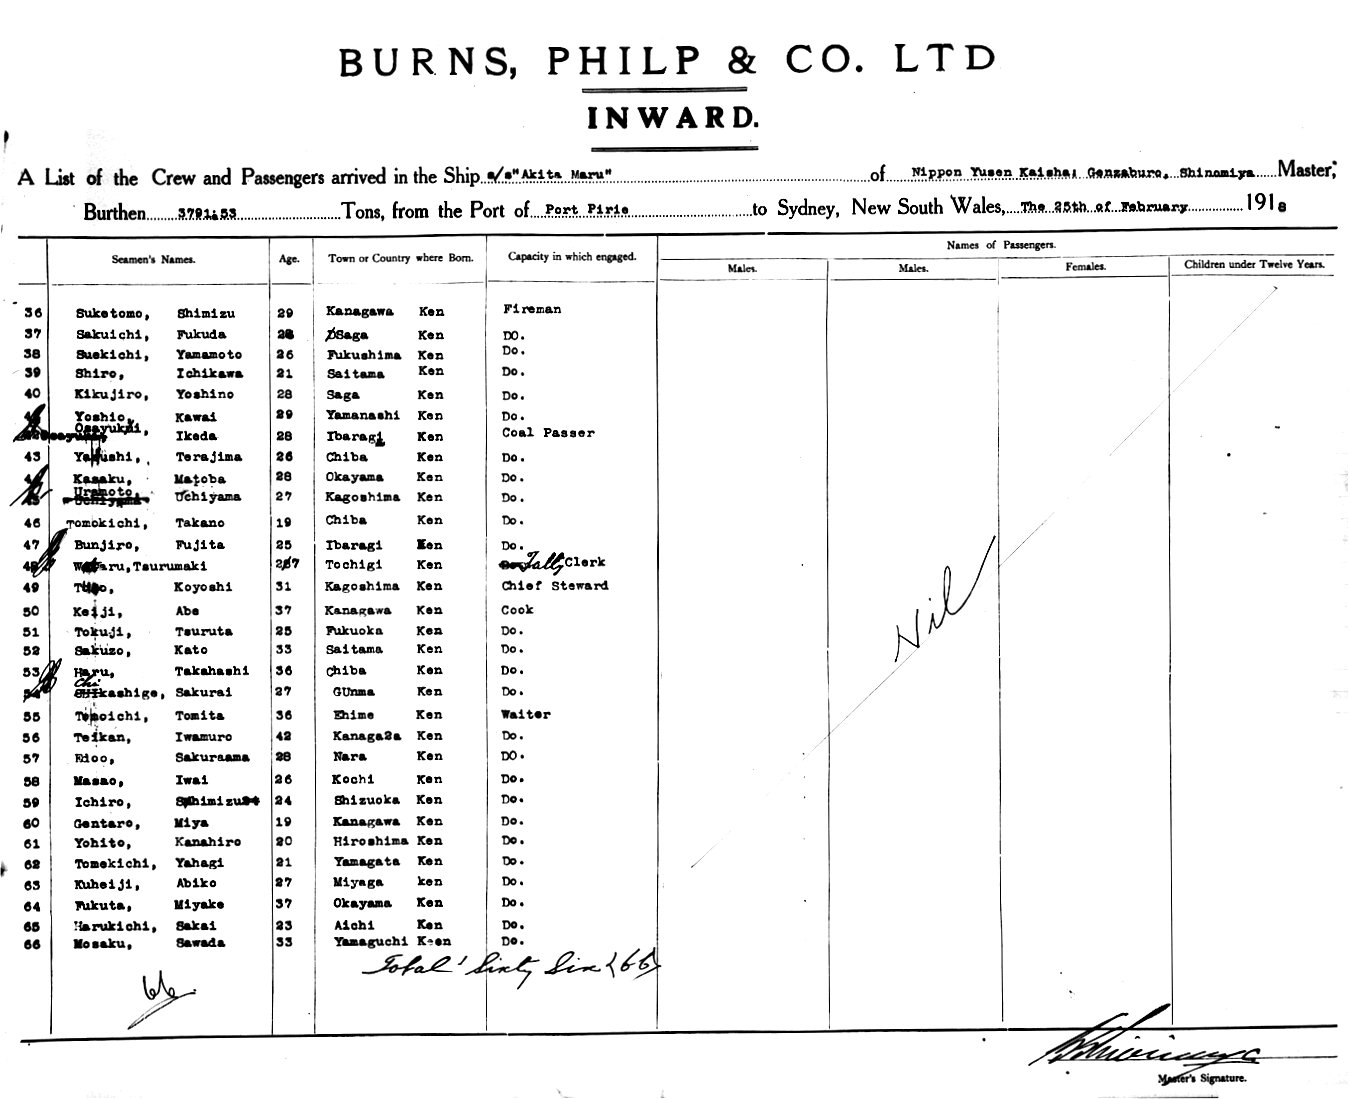 BURNS, PHILP & CO. LTD
INWARD.
A List of the Crew and Passengers arrived in the Ship s/s"Akita Maru" of Nippon Yusen Kaisha; Genzaburo, Shinomiya Master,
Burthen 3791.53 Tons, from the Port of Port Pirie to Sydney, New South Wales, The 25th of February 1918
Names of Passengers.
Seamen's Names. Age. Town or Country where Born. Capacity in which engaged. Males. Males. Females. Children under Twelve Years.
36 Suketomo, Shimizu 29 Kanagawa Ken Fireman
37 Sakuichi, Fukuda 28 Saga Ken DO.
38 Suekichi, Yamamoto 26 Fukushima Ken Do.
39 Shiro, Ichikawa 21 Saitama Ken Do.
40 Kikujiro, Yoshino 28 Saga Ken Do.
Yoshio, Kawai 29 Yamanashi Ken Do.
Osayuki, Ikeda 28 Ibaragi Ken Coal Passer
43 Terajima 26 Chiba Ken Do.
Kasaku, Matoba 28 Okayama Ken Do.
Uramoto, Uchiyama 27 Kagoshima Ken Do.
46 Tomokichi, Takano 19 Chiba Ken Do.
47 Bunjiro, Fujita 25 Ibaragi Ken Do.
48 Wataru, Tsurumaki 27 Tochigi Ken Tally Clerk
49 Koyoshi 31 Kagoshima Ken Chief Steward
50 Keiji, Abe 37 Kanagawa Ken Cook
51 Tokuji, Tsuruta 25 Fukuoka Ken Do.
52 Sakuzo, Kato 33 Saitama Ken Do.
53 Haru, Takahashi 36 Chiba Ken Do.
54 Chikashige, Sakurai 27 GUnma Ken Do.
55 Tomoichi, Tomita 36 Ehime Ken Waiter
56 Teikan, Iwamuro 42 Kanaga2a Ken Do.
57 Sakuraama 28 Nara Ken DO.
58 Masao, Iwai 26 Kochi Ken Do.
59 Ichiro, Shimizu 24 Shizuoka Ken Do.
60 Gentaro, Miya 19 Kanagawa Ken Do.
61 Yohito, Kanahiro 20 Hiroshima Ken Do.
62 Tomekichi, Yahagi 21 Yamagata Ken Do.
63 Kuheiji, Abiko 27 Miyaga ken Do.
64 Fukuta, Miyake 37 Okayama Ken Do.
65 Harukichi, Sakai 23 Aichi Ken Do.
66 Mosaku, Sawada 33 Yamaguchi Keen Do.
Nil
Total Sixty Six (66)
66
Master's Signature.